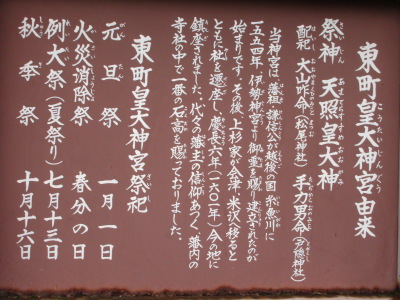 東町皇大神宮由来
祭神 天照皇大神
配祀 大山咋命(松尾神社) 手力男命(戸隠神社)
当神宮は、藩祖謙信公が越後の国糸魚川に
一五五四年、伊勢神宮より御霊を賜り建立されたのが
始まりです。その後、上杉家の会津、米沢へ移ると
ともに社を遷座し、慶長六年(一六〇一)今の地に
鎮座されました。代々の藩主の信仰あつく、藩内の
寺社の中で一番の石高を賜っておりました。
東町皇大神宮祭祀
元旦祭 一月一日
火災消除祭 春分の日
例大祭(夏祭り) 七月十三日
秋季祭 十月十六日